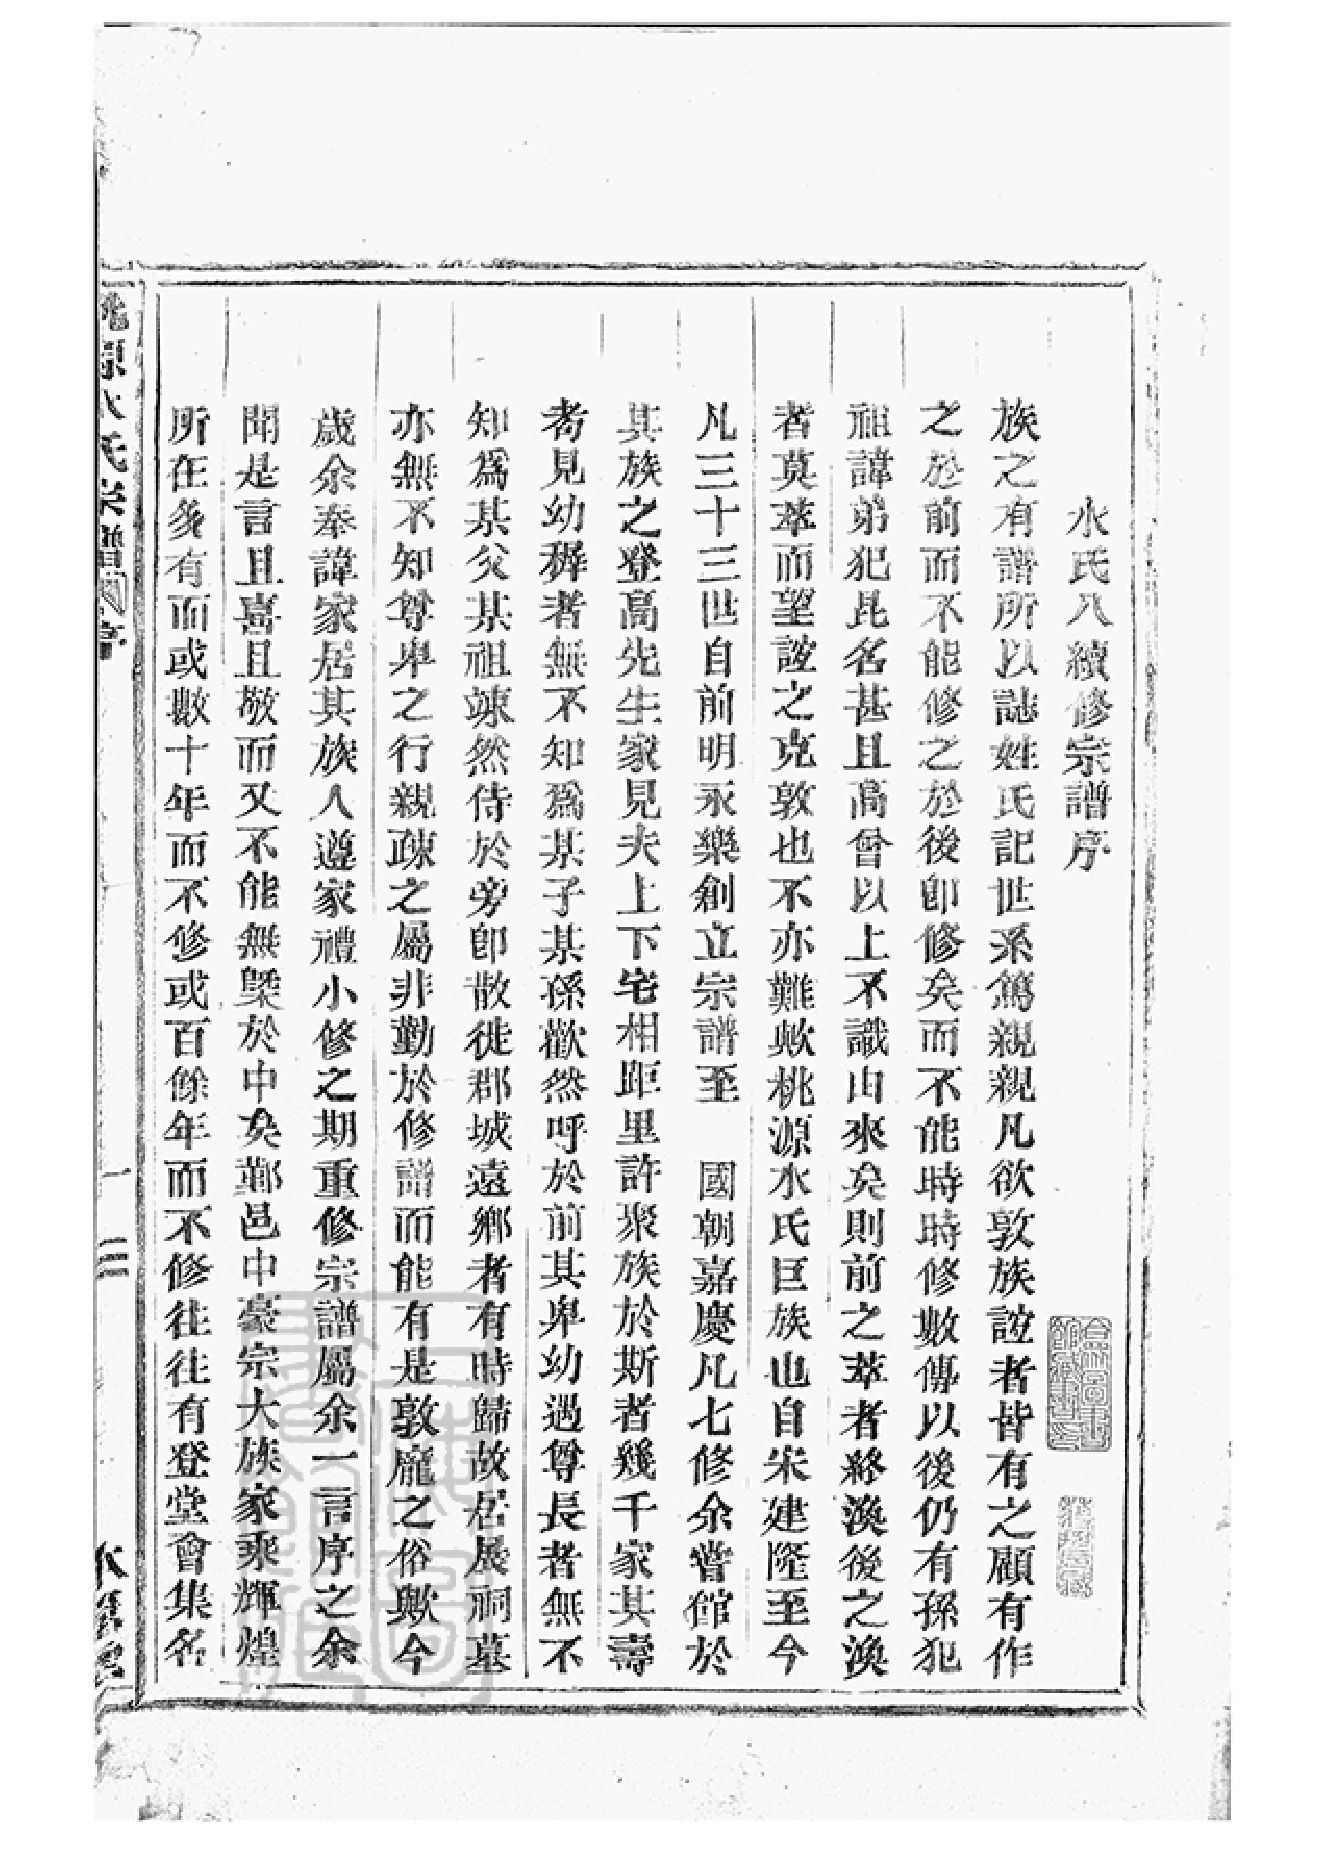 水氏八續修宗譜序
族之有譜所以誌姓氏記世系篤親親凡欲敦族誼者皆有之顧有作
之於前而不能修之於後卽修矣而不能時時修數傳以後仍有孫犯
祖諱弟犯昆名甚且高曾以上不識由來矣則前之萃者終渙後之渙
者莫萃而望誼之克敦也不亦難歟桃源水氏巨族也自宋建隆至今
凡三十三世自前明永樂創立宗譜至 國朝嘉慶凡七修余嘗館於
其族之登高先生家見夫上下宅相距里許聚族於斯者幾千家其壽
耇見幼穉者無不知爲某子某孫歡然呼於前其卑幼遇尊長者無不
知爲某父某祖竦然侍於旁卽散徙郡城遠鄉者有時歸故居展祠墓
亦無不知尊卑之行親疎之屬非勤於修譜而能有是敦龐之俗歟今
歲余奉諱家居其族人遵家禮小修之期重修宗譜屬余一言序之余
聞是言且喜且敬而又不能無槩於中矣鄞邑中豪宗大族家乘輝煌
所在多有而或數十年而不修或百餘年而不修往往有登堂會集名
桃源水氏宗譜 序
一
二